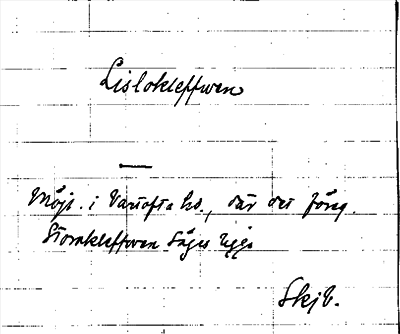 Lislokleffwen
—
Möjl. i Vartofta hd., där det förseg.
Stomkleffwen säges ligga
Skjb.